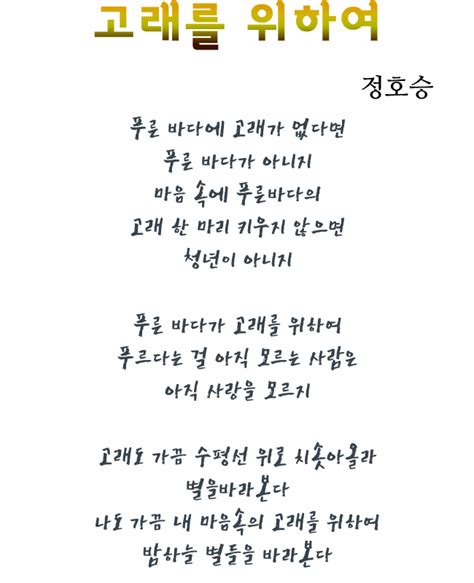 고래를 위하여
정호승
푸른 바다에 고래가 없다면
푸른 바다가 아니지
마음 속에 푸른바다의
고래 한 마리 키우지 않으면
청년이 아니지
푸른 바다가 고래를 위하여
푸르다는 걸 아직 모르는 사람은
아직 사랑을 모르지
고래도 가끔 수평선 위로 치솟아올라
별을바라본다
나도 가끔 내 마음속의 고래를 위하여
밤하늘 별들을 바라본다